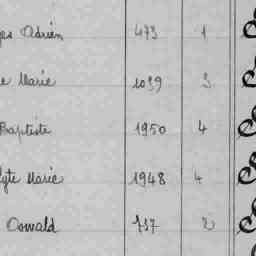 Adrien 473 1
Marie 1039 3
Baptiste 1950 4
Marie 1948 4
Oswald 737 2